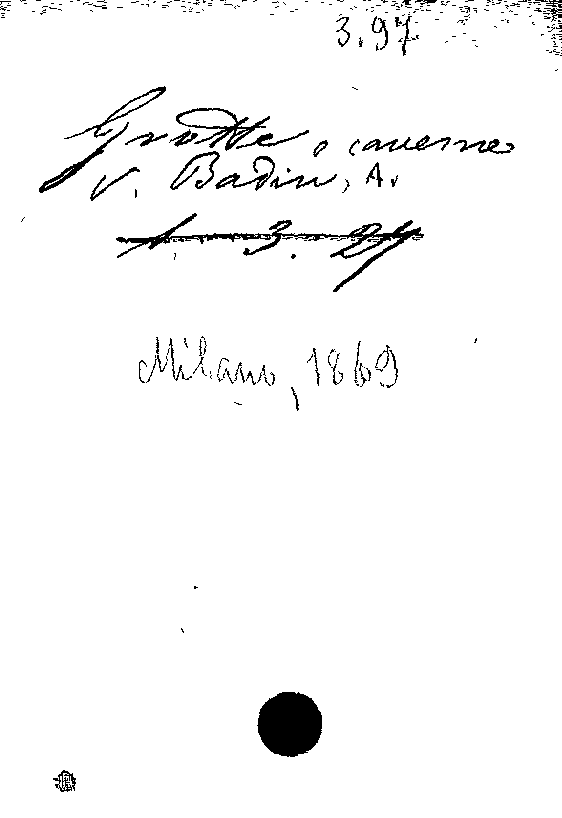 3.97
Grotte e caverne
V. Badin, A.
1. 3. 24
Milano, 1869